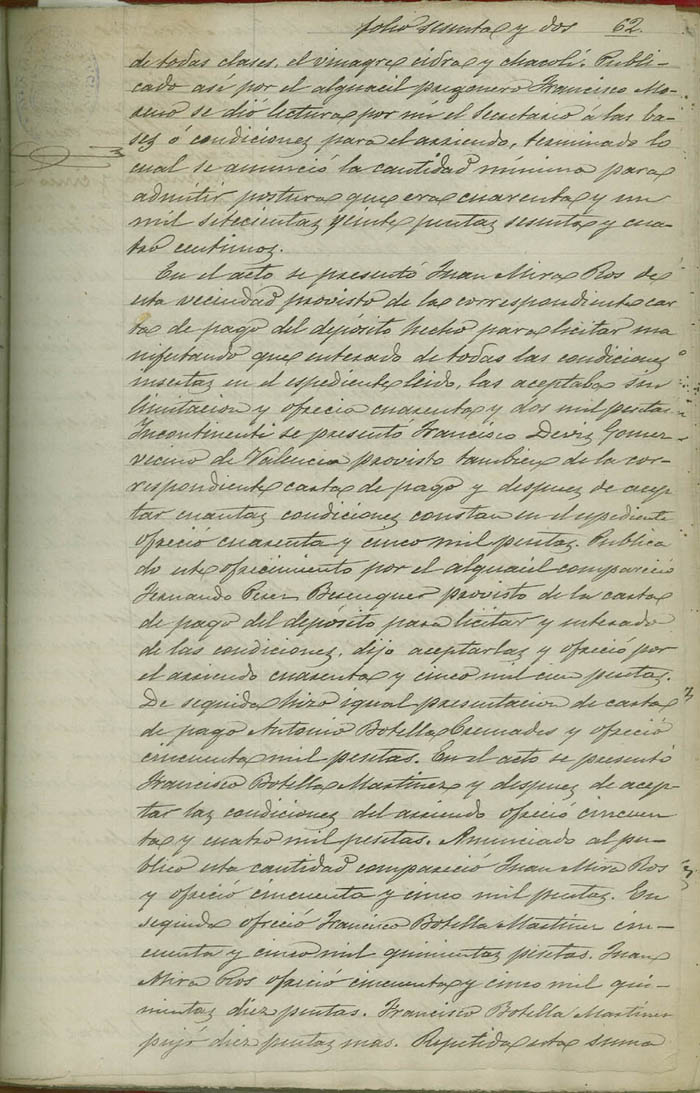 folio sesenta y dos 62.
de todas clases, el vinagre cidra y chacolí. Publi-
cado así por el alguacil pregonero Francisco Mo-
reno se dió lectura por mí el Secretario á las ba-
ses ó condiciones para el arriendo, terminado lo
cual se anunció la cantidad mínima para
admitir postura que era cuarenta y un
mil setecientas veinte pesetas sesenta y cua-
tro centimos.
En el acto se presentó Juan Mira Ros de
esta vecindad provisto de la correspondiente car
ta de pago del depósito hecho para licitar ma
nifestando que enterado de todas las condiciones
insertas en el espediente leido, las aceptaba sin
limitacion y ofrecia cuarenta y dos mil pesetas.
Incontinenti se presentó Francisco Deviz Gomez
vecino de Valencia provisto tambien de la cor-
respondiente carta de pago y despues de acep
tar cuantas condiciones constan en el espediente
ofrecio cuarenta y cinco mil pesetas. Publica
do este ofrecimiento por el alguacil compareció
Fernando Perez Berenguer provisto de la carta
de pago del depósito para licitar y enterado
de las condiciones, dijo aceptarlas y ofreció por
el arriendo cuarenta y cinco mil cien pesetas.
De seguida hizo igual presentacion de carta
de pago Antonio Botella Cremades y ofreció
cincuenta mil pesetas. En el acto se presentó
Francisco Botella Martinez y despues de acep-
tar las condiciones del arriendo ofrecio cincuen
ta y cuatro mil pesetas. Anunciado al pu-
blico esta cantidad compareció Juan Mira Ros
y ofreció cincuenta y cinco mil pesetas. En
seguida ofreció Francisco Botella Martinez cin-
cuenta y cinco mil quinientas pesetas. Juan
Mira Ros ofreció cincuenta y cinco mil qui-
nientas diez pesetas. Francisco Botella Martinez
pujó diez pesetas mas. Repetida esta suma